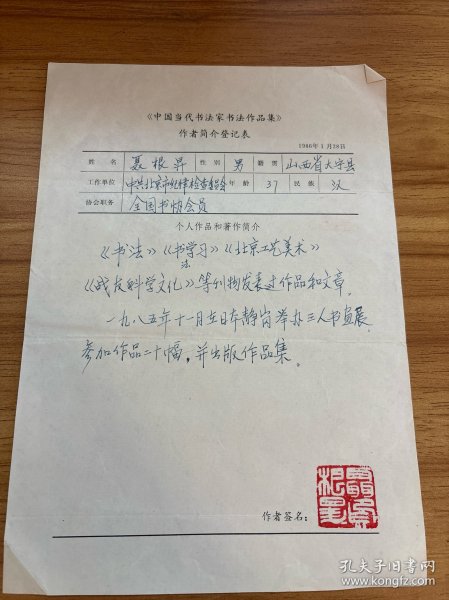 《中国当代书法家书法作品集》
作者简介登记表
1986年1月28日
姓 名 聂根升 性 别 男 籍 贯 山西省大宁县
工作单位 中共北京市纪律检查委员会 年 龄 37 民 族 汉
协会职务 全国书协会员
个人作品和著作简介
《书法》《书学习》《北京工艺美术》
法
《科学文化》等刊物发表过作品和文章，
一九八五年十一月在日本静岗举办三人书画展，
参加作品二十幅，并出版作品集。
作者签名：
孔夫子旧书网
www.kongfz.com